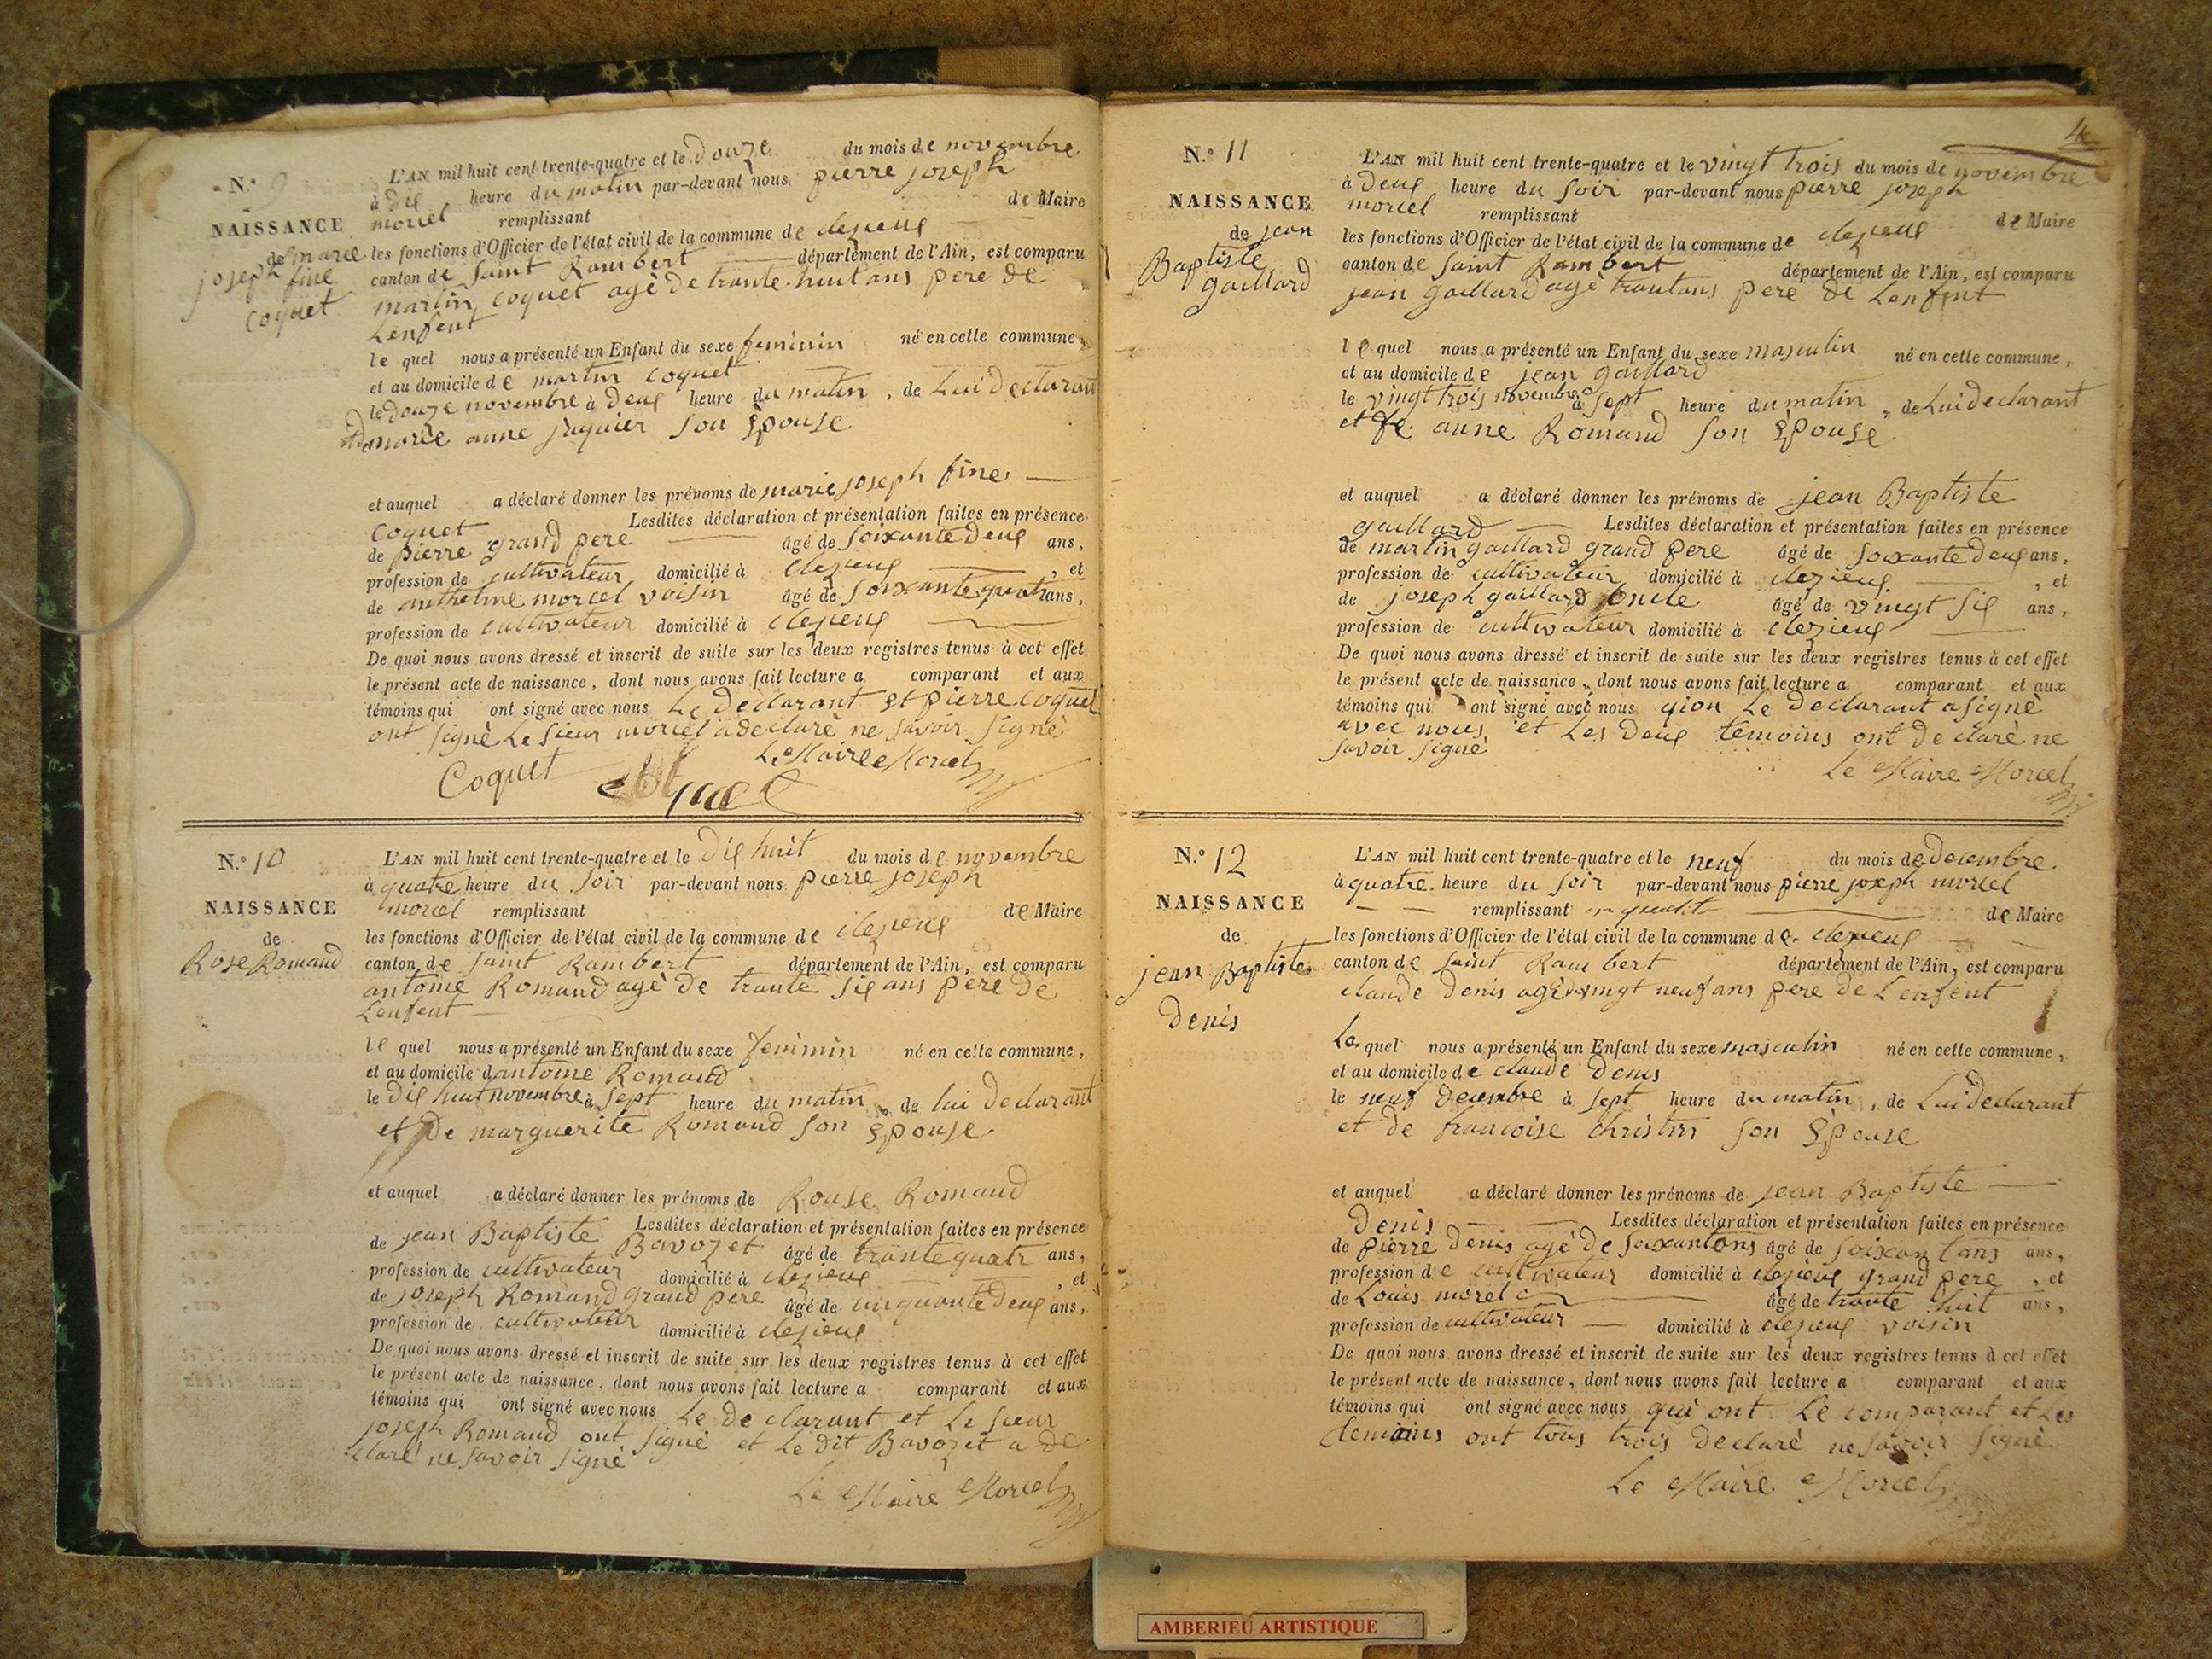 N.° 9
NAISSANCE
de marie
joseph fine
coquet
L'AN mil huit cent trente-quatre et le douze du mois de novembre
à dix heure du matin par-devant nous pierre joseph
morcel remplissant de Maire
les fonctions d'Officier de l'état civil de la commune de clezieux
canton de saint Rambert département de l'Ain, est comparu
martin coquet agè de trante huit ans pere de
Lenfent
le quel nous a présenté un Enfant du sexe feminin né en cette commune,
et au domicile de martin coquet
le douze novembre à deux heure du matin, de Lui declarant
et de marie anne jaquier son Epouse
et auquel a déclaré donner les prénoms de marie joseph fine
coquet Lesdites déclaration et présentation faites en présence
de pierre grand pere âgé de soixante deux ans,
profession de cultivateur domicilié à clezieux, et
de anthelme morcel voisin âgé de soixante quatr ans,
profession de cultivateur domicilié à clezieux
De quoi nous avons dressé et inscrit de suite sur les deux registres tenus à cet effet
le présent acte de naissance, dont nous avons fait lecture a comparant et aux
témoins qui ont signé avec nous Le declarant et pierre coquet
ont signè Le sieur morcel a declarè ne savoir signè
Le Maire Morcel
Coquet
N.° 10
NAISSANCE
de
Rose Romand
L'AN mil huit cent trente-quatre et le dix huit du mois de novembre
à quatre heure du soir par-devant nous pierre joseph
morcel remplissant de Maire
les fonctions d'Officier de l'état civil de la commune de clezieux
canton de saint Rambert département de l'Ain, est comparu
antoine Romand agè de trante six ans pere de
Lenfent
le quel nous a présenté un Enfant du sexe feminin né en cette commune,
et au domicile d antoine Romand
le dix huit novembre à sept heure du matin, de lui declarant
et de marguerite Romand son Epouse
et auquel a déclaré donner les prénoms de Rouse Romand
Lesdites déclaration et présentation faites en présence
de jean Baptiste Bavozet âgé de trante quatr ans,
profession de cultivateur domicilié à clezieux, et
de joseph Romand grand pere âgé de cinquante deux ans,
profession de cultivateur domicilié à clezieux
De quoi nous avons dressé et inscrit de suite sur les deux registres tenus à cet effet
le présent acte de naissance, dont nous avons fait lecture a comparant et aux
témoins qui ont signé avec nous Le declarant et Le sieur
joseph Romand ont signè et Le dit Bavozet a de
claré ne savoir signé
Le Maire Morcel
4
N.° 11
NAISSANCE
de jean
Baptiste
gaillard
L'AN mil huit cent trente-quatre et le vingt trois du mois de novembre
à deux heure du soir par-devant nous pierre joseph
morcel remplissant de Maire
les fonctions d'Officier de l'état civil de la commune de clezieux
canton de saint Rambert département de l'Ain, est comparu
jean gaillard agè trantans pere de Lenfent
le quel nous a présenté un Enfant du sexe masculin né en cette commune,
et au domicile de jean gaillard
le vingt trois novembre à sept heure du matin, de Lui declarant
et anne Romand son Epouse
et auquel a déclaré donner les prénoms de jean Baptiste
gaillard Lesdites déclaration et présentation faites en présence
de martin gaillard grand pere âgé de soixante deux ans,
profession de cultivateur domicilié à clezieux, et
de joseph gaillard oncle âgé de vingt six ans,
profession de cultivateur domicilié à clezieux
De quoi nous avons dressé et inscrit de suite sur les deux registres tenus à cet effet
le présent acte de naissance, dont nous avons fait lecture a comparant et aux
témoins qui ont signé avec nous Le declarant a signè
avec nous et Les deux temoins ont declarè ne
savoir signè
Le Maire Morcel
N.° 12
NAISSANCE
de
jean Baptiste
denis
L'AN mil huit cent trente-quatre et le neuf du mois de decembre
à quatre heure du soir par-devant nous pierre joseph morcel
remplissant de Maire
les fonctions d'Officier de l'état civil de la commune de clezieux
canton de saint Rambert département de l'Ain, est comparu
claude denis agè vingt neuf ans pere de Lenfent
Le quel nous a présenté un Enfant du sexe masculin né en cette commune,
et au domicile de claude denis
le neuf decembre à sept heure du matin, de Lui declarant
et de francoise christin son Epouse
et auquel a déclaré donner les prénoms de jean Baptiste
denis Lesdites déclaration et présentation faites en présence
de pierre denis agè de soixantans âgé de soixantans ans,
profession de cultivateur domicilié à clezieux grand pere, et
de Louis morel âgé de trante huit ans,
profession de cultivateur domicilié à clezieux voisin
De quoi nous avons dressé et inscrit de suite sur les deux registres tenus à cet effet
le présent acte de naissance, dont nous avons fait lecture a comparant et aux
témoins qui ont signé avec nous qui ont Le comparant et Les
temoins ont tous trois declarè ne savoir signè
Le Maire Morcel
AMBERIEU ARTISTIQUE